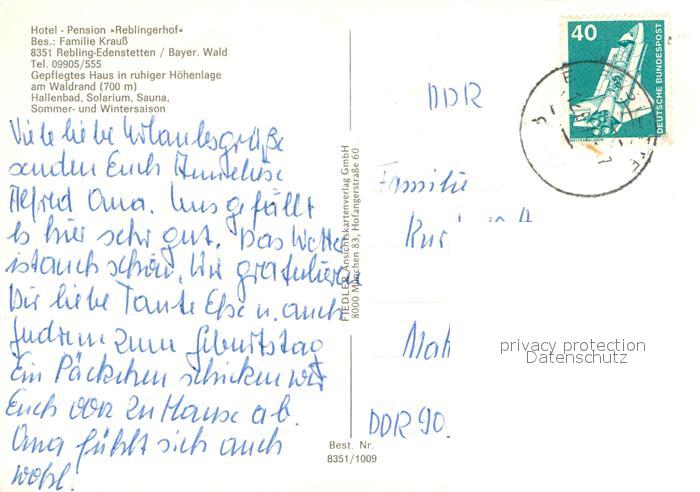 Hotel - Pension »Reblingerhof«
Bes.: Familie Krauß
8351 Rebling-Edenstetten / Bayer. Wald
Tel. 09905/555
Gepflegtes Haus in ruhiger Höhenlage
am Waldrand (700 m)
Hallenbad, Solarium, Sauna,
Sommer- und Wintersaison
Viele liebe Urlaubsgrüße
senden Euch Anneliese
Alfred Oma. Uns gefällt
es hier sehr gut. Das Wetter
ist auch schön. Wir gratulieren
Dir liebe Tante Else u. auch
zum Geburtstag
Ein Päckchen schicken wir
Euch von zu Hause ab.
Oma fühlt sich auch
wohl.
FIEDLER Ansichtskartenverlag GmbH
8000 München 83, Hofangerstraße 60
Best. Nr.
8351/1009
40
DEUTSCHE BUNDESPOST
WELTRAUMLABOR
DDR
Familie
Kur
Mak
DDR 90.
privacy protection
Datenschutz